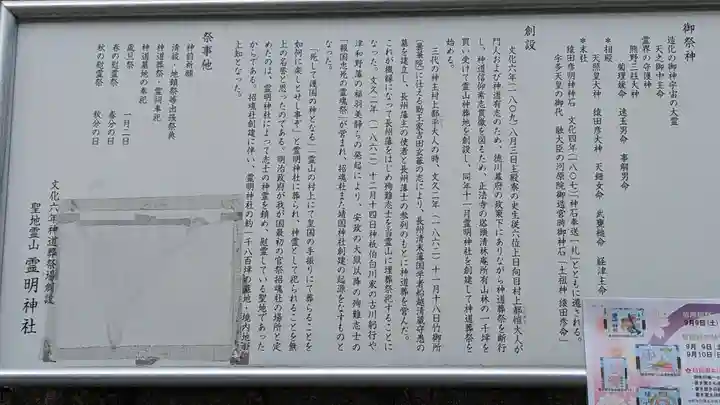 御祭神
造化の御神宇宙の大霊
天之御中主命
霊界の守護神
熊野三柱大神
菊理媛命 速玉男命 事解男命
＊相殿
天照皇大神 猿田彦大神 天鈿女命 武甕槌命 経津主命
＊末社
猿田彦明神神石 文化四年(一八〇七)神石奉送一札」とともに遷される。
宇多天皇の御代 融大臣の河原院御造営時御神石「土祖神 猿田彦命」
創設
文化六年(一八〇九)八月三日主殿寮の史生従六位上日向目村上都愷大人が
門人および神道有志のため、徳川幕府の政策下にありながら神道葬祭を断行
し、神道信仰素志貫徹を図るため、正法寺の塔頭清林庵所有山林の一千坪を
買い受けて霊山神葬地を創設し、同年十一月霊明神社を創建して神道葬祭を
始める。
三代の神主村上都平大人の時、文久二年(一八六二)十一月十八日竹御所
(曇華院)に仕える勤王家吉田玄蕃の志により、長州清末藩国学者船越清蔵守愚の
墓を建立し、長州藩主の使者と長州藩士の参列のもとに神道葬を営んだ。
これが機縁になって長州藩をはじめ殉難志士を当霊山に埋葬祭祀することに
なった。文久二年(一八六二)十二月十四日神祇伯白川家の古川躬行や、
津和野藩の福羽美静らの発起により、安政の大獄以降の殉難志士の
「報国忠死の霊魂祭」が営まれ、招魂社また靖国神社創建の起源をなすものと
なった。
「死して護国の神となる」「霊山の村上にて皇国の手振りにて葬らることを
如何に楽しとせし事ぞ」と霊明神社に葬られ、神霊として祀られることを無
上の名誉と思ったのである。明治政府が我が国最初の官祭招魂社の場所と定
めたのは、霊明神社によって志士の神霊を鎮め、慰霊している聖地であった
からである。招魂社創建に伴い、霊明神社の約一千八百坪の墓地・境内地が
上知となった。
祭事他
神前祈願
清祓・地鎮祭等出張祭典
神道葬祭・霊祠奉祀
神道墓地の奉祀
歳旦祭 一月一日
春の慰霊祭 春分の日
秋の慰霊祭 秋分の日
文化六年神道葬祭場創設
聖地霊山 霊明神社
9月9日(土)
9月 9日(土
9月10日(日